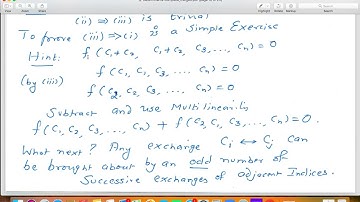 (ii) ⇒ (iii) is trivial
To prove (iii) ⇒ (i) is a Simple Exercise
Hint: f(C1+C2, C1+C2, C3, .... Cn) = 0
(by iii) f(C1, C1, C3, .... Cn) = 0
f(C2, C2, C3, ... Cn) = 0
Subtract and use Multilinearity
f(C1, C2, C3, ... Cn) + f(C2, C1, C3, ... Cn) = 0.
What next? Any exchange Ci ↔ Cj can
be brought about by an odd number of
Successive exchanges of adjacent Indices.